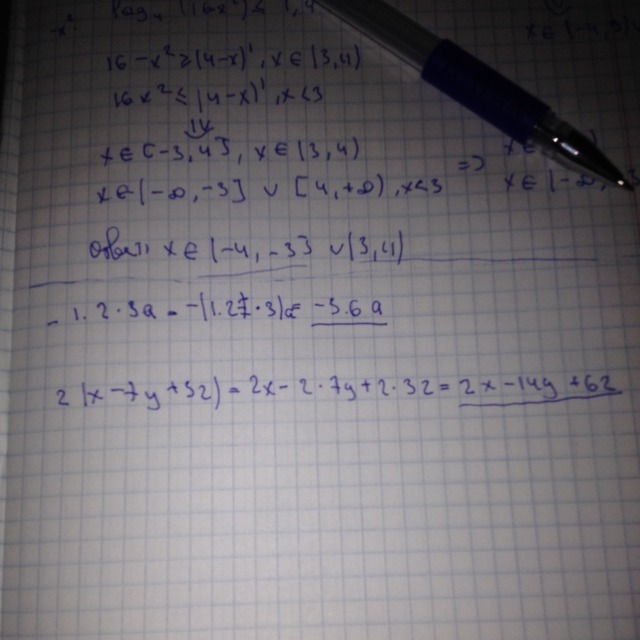 16 - x² ≥ (4-x)', x ∈ (3,4)
16x² ≤ (4-x)', x<3
x ∈ [-3,4], x ∈ (3,4) =>
x ∈ (-∞, -3] ∨ [4, +∞), x<3 x ∈ (-∞,
ответ: x ∈ (-4, -3] ∨ (3,4)
-1.2·3a = -(1.2·3)a = -3.6a
2(x-7y+3z) = 2x-2·7y+2·3z = 2x-14y+6z